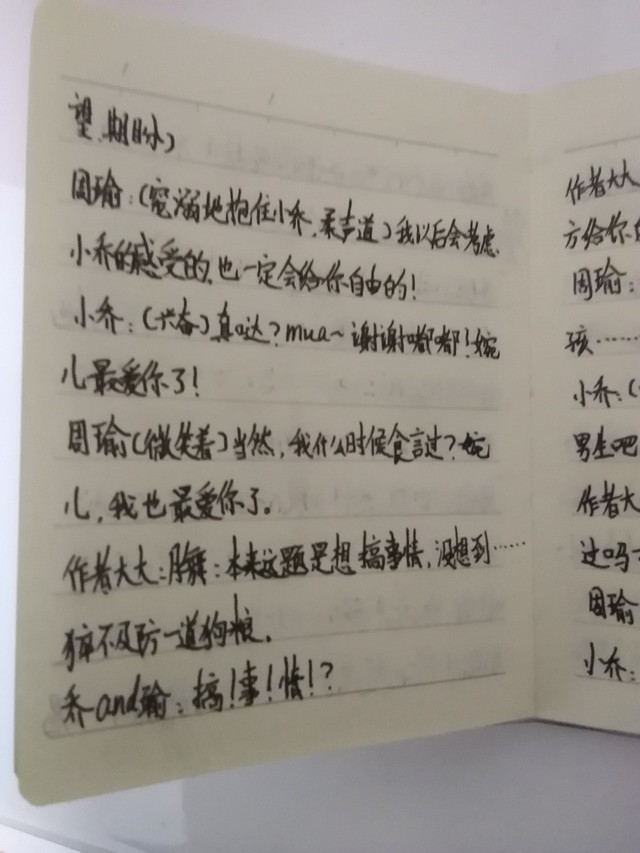 望、期盼)
周瑜:(宠溺地抱住小乔,柔声道)我以后会考虑
小乔的感受的,也一定会给你自由的!
小乔:(兴奋)真哒?mua~谢谢嘟嘟!婉
儿最爱你了!
周瑜(微笑着)当然,我什么时候食言过?婉
儿,我也最爱你了。
作者大大::本来这题是想搞事情,没想到……
猝不及防一道狗粮。
乔and瑜:搞!事!情!?
作者大大
方给你
周瑜:
孩……
小乔:(
男生吧
作者大
过吗?
周瑜
小乔: